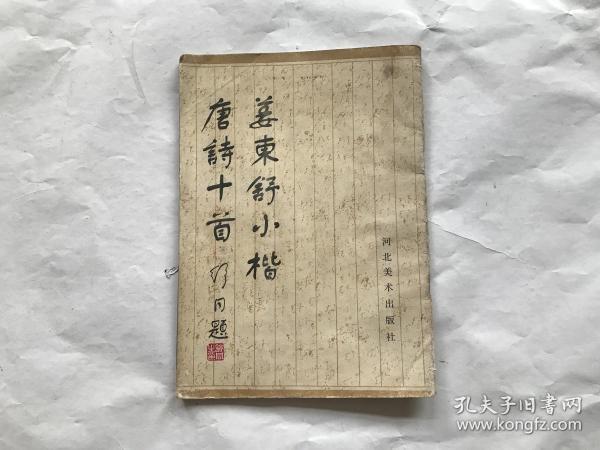 姜東舒小楷
唐詩十首
舒同題
河北美术出版社
孔夫子旧书网
www.kongfz.com